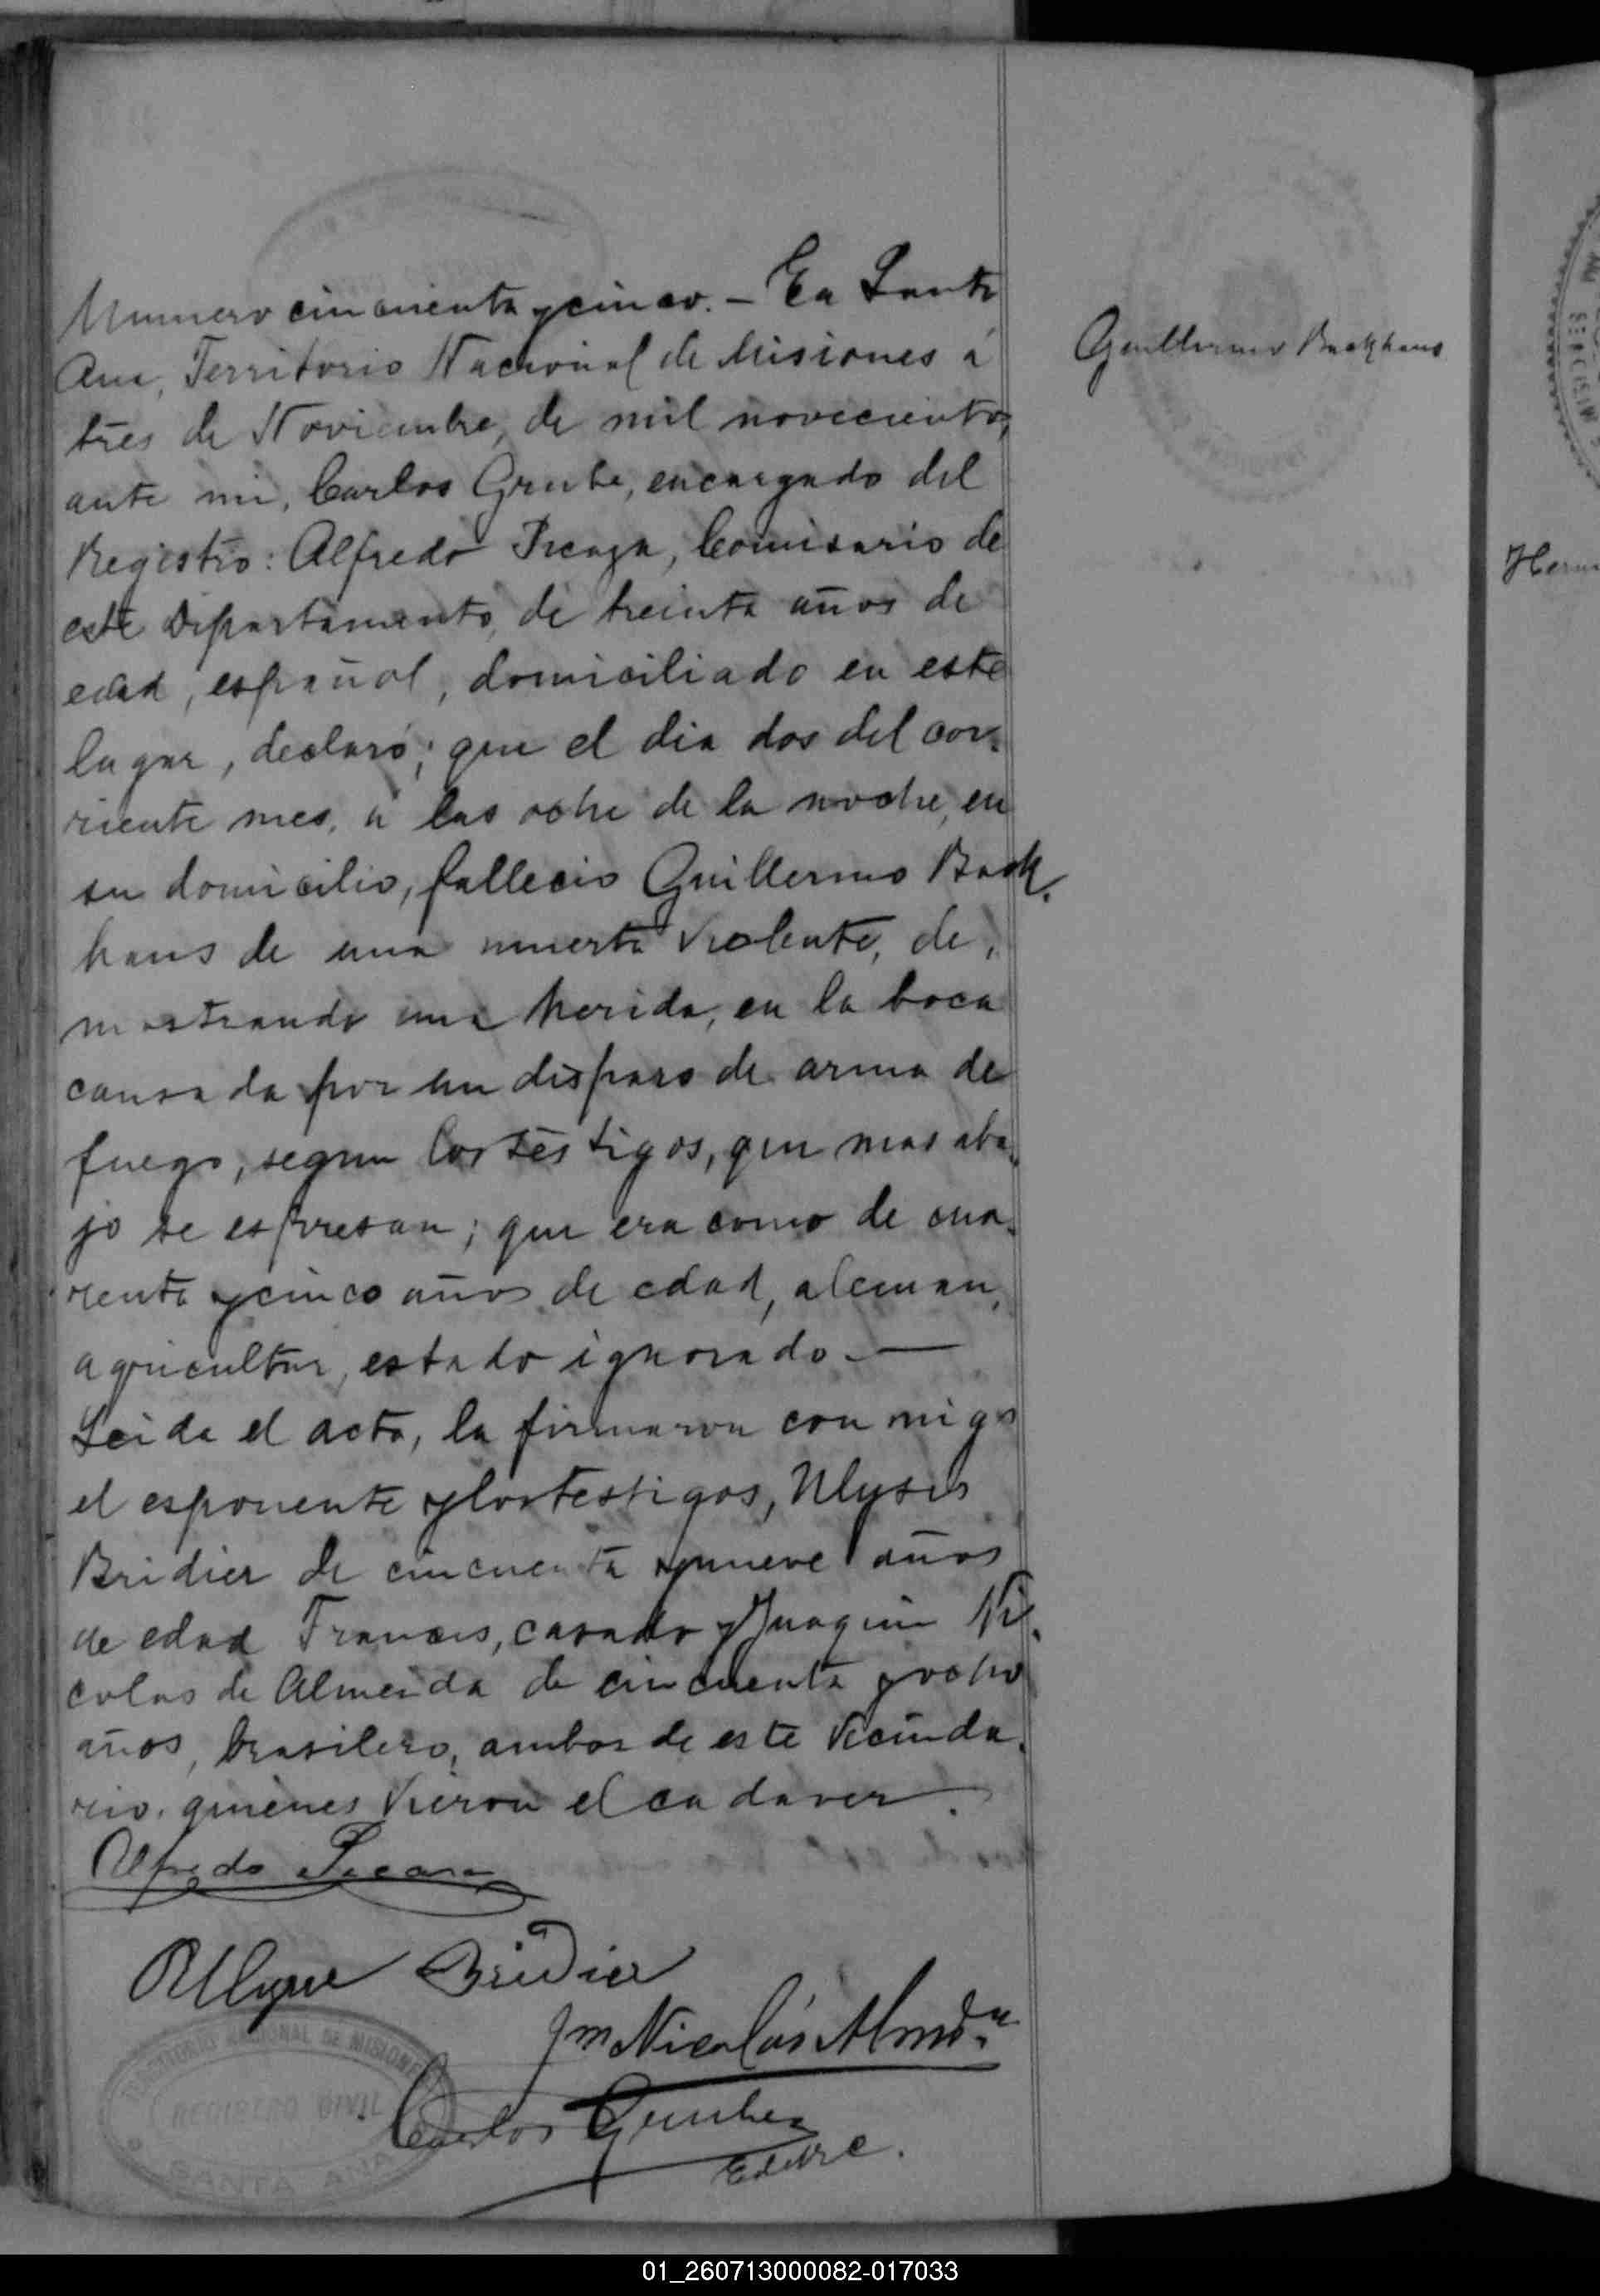 Numero cincuenta y cinco. - En Santa
Ana, Territorio Nacional de Misiones á
tres de Noviembre, de mil novecientos,
ante mi, Carlos Grube, encargado del
Registro: Alfredo Icaza, Comisario de
este Departamento, de treinta años de
edad, español, domiciliado en este
lugar, declaró; que el dia dos del cor-
riente mes, á las oche de la noche, en
su domicilio, fallecio Guillermo Back-
haus de una muerte violente, de-
mostrando una herida, en la boca
causada por un disparo de arma de
fuego, segun los testigos, que mas aba-
jo se espresan; que era como de cua-
renta y cinco años de edad, aleman,
agricultur, estado ignorado. —
Leida el acta, la firmaron con migo
el esponente y los testigos, Ulyses
Bridier de cincuenta y nueve años
de edad Frances, casado y Juaquin Ni-
colas de Almeida de cincuenta y ocho
años, brasilero, ambos de este vecinda-
rio. quienes vieron el cadaver.
Alfredo
Bridier
Jm Nicolás
Carlos Grube
Guillermo Backhaus
TERRITORIO NACIONAL DE MISIONES
REGISTRO CIVIL
SANTA ANA
01_260713000082-017033